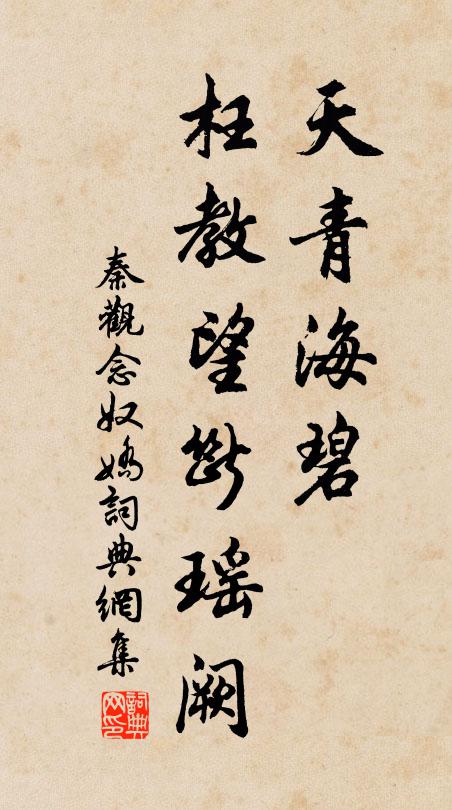 天青海碧
枉教望斷瑶闕
秦觀念奴嬌詞典網集
詞典网印